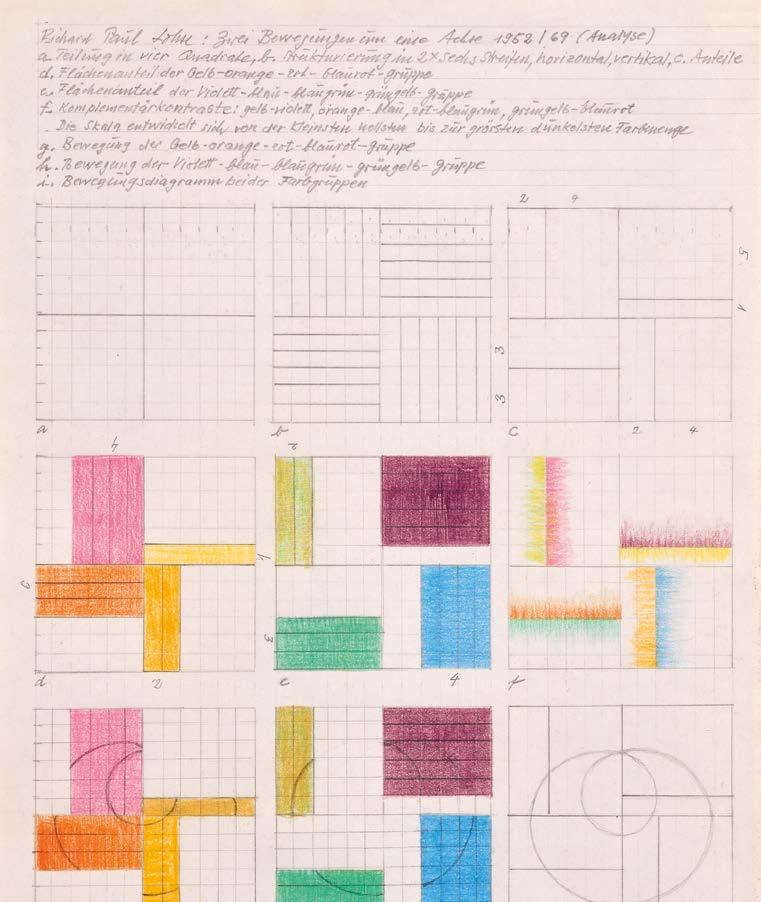 Richard Paul Lohse: Zwei Bewegungen um eine Achse 1952/69 (Analyse)
a. Teilung in vier Quadrate, b. Strukturierung in 2x sechs Streifen, horizontal, vertikal, c. Anteile
d. Flächenanteil der Gelb-orange-rot-blaurot-gruppe
e. Flächenanteil der Violett-blau-blaugrün-grüngelb-gruppe
f. Komplementärkontraste: gelb-violett, orange-blau, rot-blaugrün, grüngelb-blaurot
Die Skala entwickelt sich von der kleinsten hellsten bis zur grössten dunkelsten Farbmenge
g. Bewegung der Gelb-orange-rot-blaurot-gruppe
h. Bewegung der Violett-blau-blaugrün-grüngelb-gruppe
i. Bewegungsdiagramm beider Farbgruppen
2 4
5
1
3
3
a b c
4 2 2 4
1
3
3
d 2 e 4 f